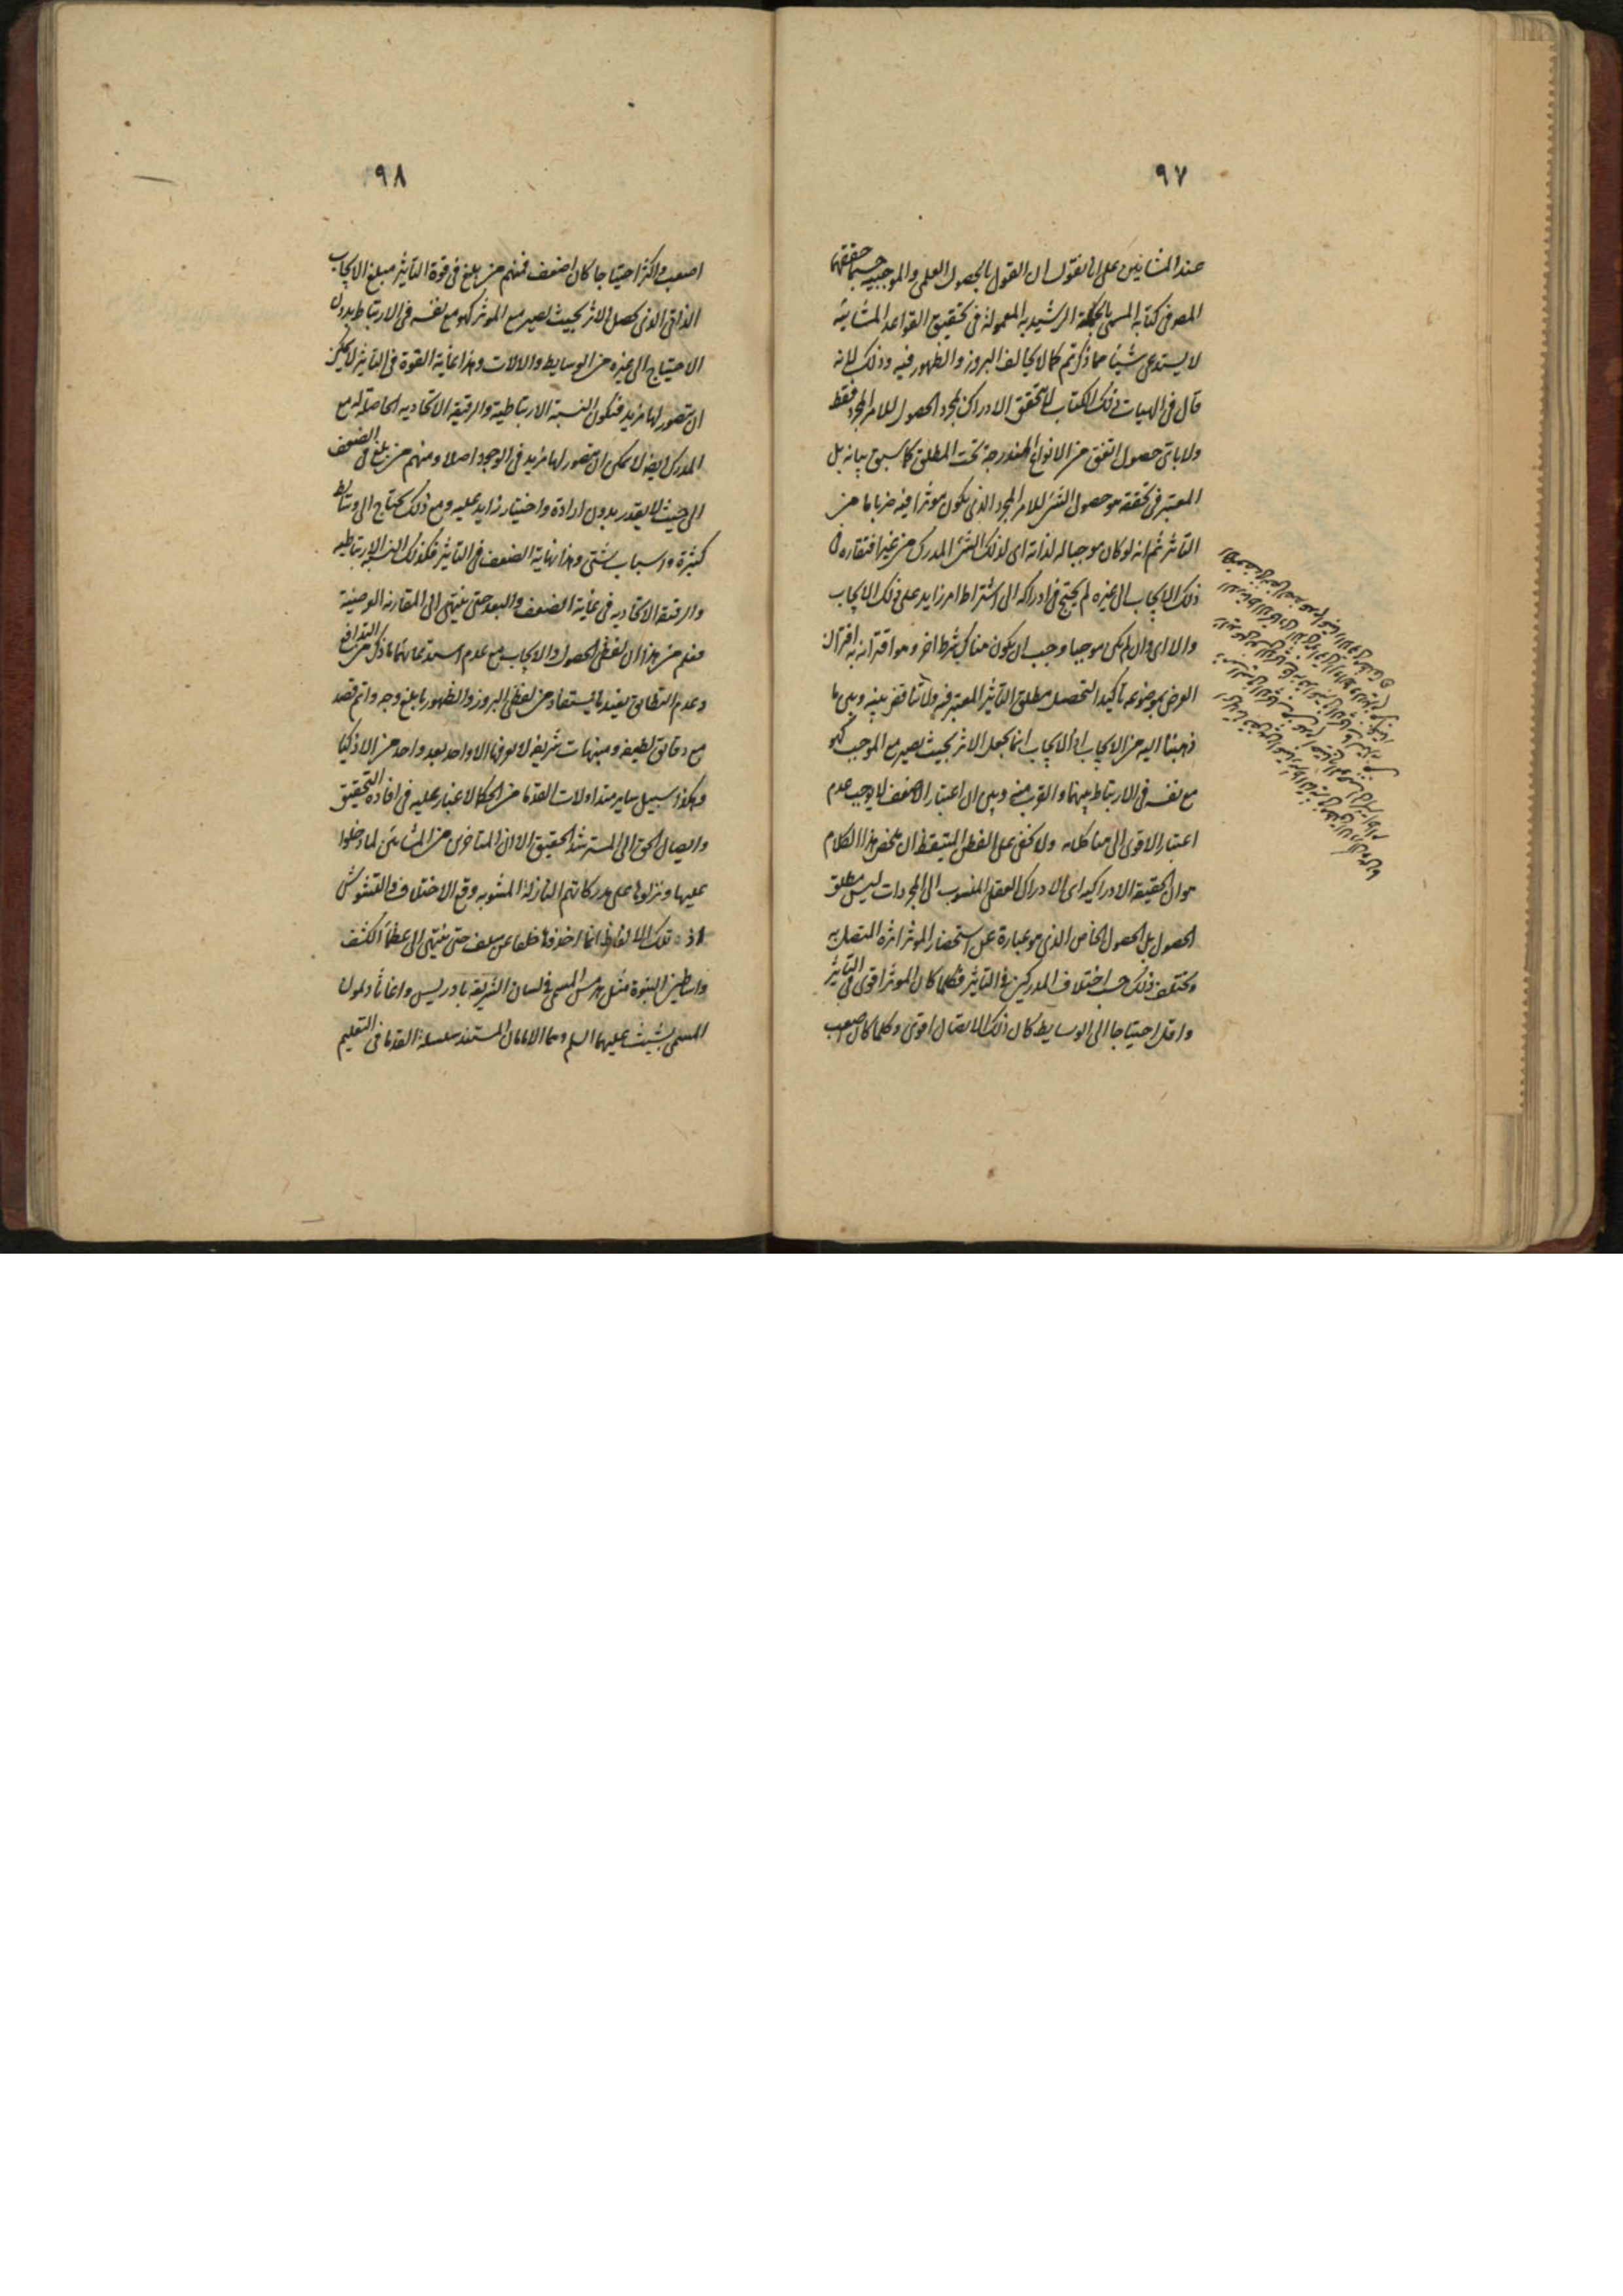 ٩٧
عند المشائين على انا نقول ان القول بالحصول العلمى والموجبيه حسبما حققها
المص فى كتابه المسمى بالحكمة الرشيديه المعمولة فى تحقيق القواعد المشائيه
لا يستدعى شيئا مما ذكرتم كما لا يخالف البروز والظهور فيه وذلك لانه
قال فى الهيات ذلك الكتاب لا يتحقق الادراك بمجرد الحصول للامر المجرد فقط
ولا باى حصول اتفق من الانواع المندرجة تحت المطلق كما سبق بيانه بل
المعتبر فى تحققه هو حصول الشئ للامر المجرد الذى يكون موثرا فيه ضربا ما من
التأثر ثم انه لو كان موجبا له لذاته اى لذلك الشئ المدرك من غير افتقاره فى
ذلك الايجاب الى غيره لم يحتج فى ادراكه الى اشتراط امر زايد على ذلك الايجاب
والا اى وان لم يكن موجبا وجب ان يكون هناك شرط اخر وهو اقترانه به اقتران
العرض بموضوعه تأكيدا لتحصل مطلق التأثير المعتبر فيه ولا تناقض بينه وبين ما
ذهبنا اليه من الايجاب اذ الايجاب انما يجعل الاثر بحيث يصير مع الموجب كهو
مع نفسه فى الارتباط بينهما والقرب منه وبين ان اعتبار الاضعف لا يوجب عدم
اعتبار الاقوى الى هنا كلامه ولا يخفى على الفطن المتيقظ ان ملخص هذا الكلام
هو ان الحقيقة الادراكيه اى الادراك العقلى المنسوب الى المجردات ليس مطلق
الحصول بل الحصول الخاص الذى هو عبارة عن استحضار الموثر اثره المتصل به
ويختلف ذلك حسب اختلاف المدركين فى التأثير فكلما كان الموثر اقوى فى التأثير
واقل احتياجا الى الوسايط كان ذلك الاتصال اقوى وكلما كان اصعب
٩٨
اصعب واكثر احتياجا كان اضعف فمنهم من بلغ فى قوة التأثير مبلغ الايجاب
الذاتى الذى يحصل الاثر بحيث يصير مع الموثر كهو مع نفسه فى الارتباط بدون
الاحتياج الى غيره من الوسايط والالات وهذا غاية القوة فى التأثير لا يمكن
ان يتصور لها مزيد فتكون النسبة الارتباطية والرقيقة الاتحاديه الحاصلة له مع
المدرك ايضا لا يمكن ان يتصور لها مزيد فى الوجود اصلا ومنهم من بلغ فى الضعف
الى حيث لا يقدر بدون ارادة واختيار زايد عليه ومع ذلك يحتاج الى وسائط
كثيرة واسباب شتى وهذا نهاية الضعف فى التأثير فكذلك النسبة الارتباطيه
والرقيقة الاتحاديه فى غاية الضعف والبعد حتى ينتهى الى المقارنه الوضعية
فعلم من هذا ان لفظى الحصول والايجاب مع عدم استدعائهما ما ذكر من التدافع
وعدم التطابق يفيد ما يستفاد من لفظى البروز والظهور بابلغ وجه واتم قصد
مع دقائق لطيفه ومبنيهات شريفه لا يعرفها الا واحد بعد واحد من الاذكيا
وهكذا سبيل ساير متداولات القدما من الحكما لا غبار عليه فى افادة التحقيق
وايصال الحق الى المسترشد الحقيق الا ان المتاخرين من المشائين لما دخلوا
عليها ونزلوها على مدركاتهم النازلة المشوبه وقع الاختلاف والتشوش
اذ تلك الالفاظ انما اخذوها خلفا عن سلف حتى ينتهى الى عظمأ الكشف
واساطين النبوة مثل هرمس المسمى فى لسان الشريعة بادريس واغاثاذيمون
المسمى بشيث عليهما السلم وهما الامامان المستند سلسلة القدما فى التعليم